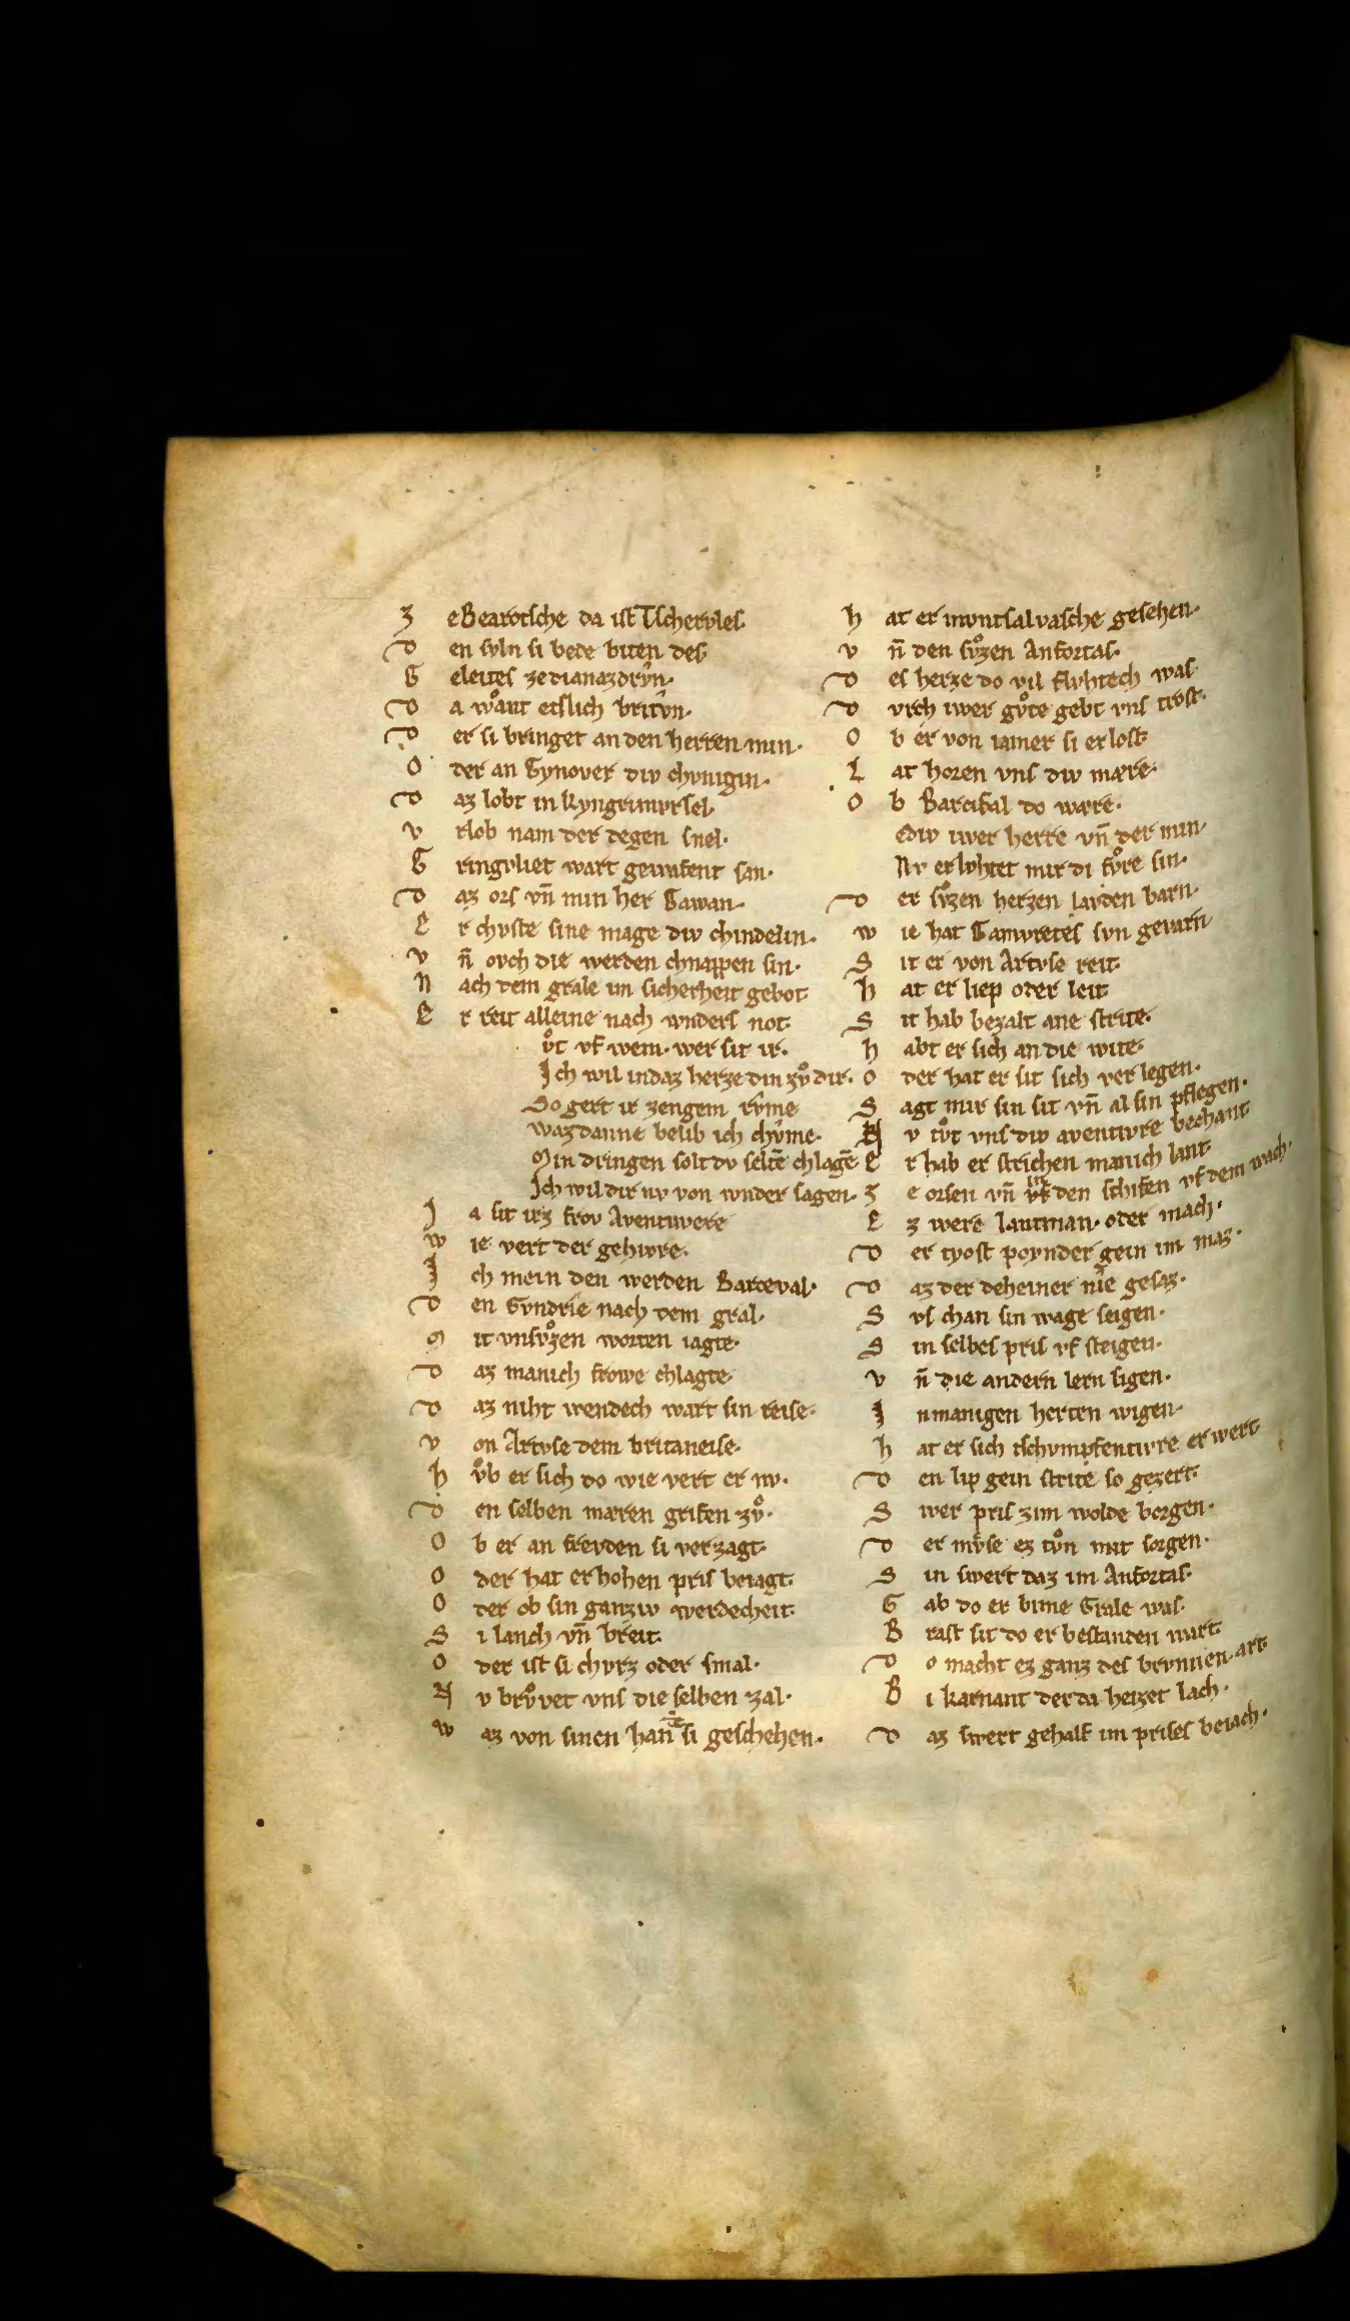 Z eBearotsche da ist Tschervles
D en svln si bete biten des
G eleites zedianazdrv̂n·
D a wͦant etslich britv̂n·
D er si bringet an den herren min·
O der an Gynover div chvnigin·
D az lobt in kyngrimvrsel·
V rlob nam der degen snel·
G ringvliet wart gewafent san·
D az ors vn̄ min her Gawan·
E r chvste sine mage div chindelin·
V n̄ ovch die werden chnappen sin·
N ach dem grale im sicherheit gebot
E r reit alleine nach wnders not·
vͦt vf wem· wer sit ir·
Ich wil indaz herze din zvͦ dir·
So gert ir zengem rv̂me
wazdanne belib ich chv̂me·
Min dringen solt dv seltē chlagē
Ich wil dir nv von wnder sagen·
J a sit irz frov Aventivere
W ie vert der gehivre·
I ch mein den werden Barceval·
D en Gvndrie nach dem gral·
M it vnsvͦzen worten iagte·
D az manich frowe chlagte·
D az niht wendech wart sin reise·
V on Artvse dem britaneise·
H vͦb er sich do wie vert er nv·
D en selben mæren grifen zvͦ·
O b er an frevden si verzagt·
O der hat er hohen pris beiagt·
O der ob sin ganziv werdecheit·
S i lanch vn̄ breit·
O der ist si chvrz oder smal·
N v brvͦvet vns die selben zal·
W az von sinen han̄te si geschehen·
H at er mvntsalvasche gesehen·
V n̄ den svͦzen Anfortas·
D es herze do vil flvhtech was
D vrch iwer gvͦte gebt vns trost·
O b er von iamer si erlost
L at horen vns div mære·
O b Barcifal do wære·
Ediv iwer herre vn̄ der min·
Nv erlvhtet mir di fvͦre sin·
D er svͦzen herzen lavden barn·
W ie hat Gamvretes svn gevarn
S it er von Artvse reit·
H at er liep oder leit
S it hab bezalt ane strite·
H abt er sich an die wite·
O der hat er sit sich verlegen·
S agt mir sin sit vn̄ al sin pflegen·
N v tvͦt vns div aventivre bechant
E r hab er strichen manich lant
Z e orsen vn̄ in vf den schifen vf dem wach·
E z were lantman· oder mach·
D er tyost poynder gein im maz·
D az der deheiner nie gesaz·
S vs chan sin wage seigen·
S in selbes pris vf steigen·
V n̄ die andern lern sigen·
I nmanigen herten wigen·
H at er sich tschvmpfentivre erwert
D en lip gein strite so gezert·
S wer pris zim wolde borgen·
D er mvͤse ez tvͦn mit sorgen·
S in swert daz im Anfortas·
G ab do er bime Grale was·
B rast sit do er bestanden wart·
D o macht ez ganz des brvnnen art
B i karnant der da heizet lach·
D az swert gehalf im prises beiach·